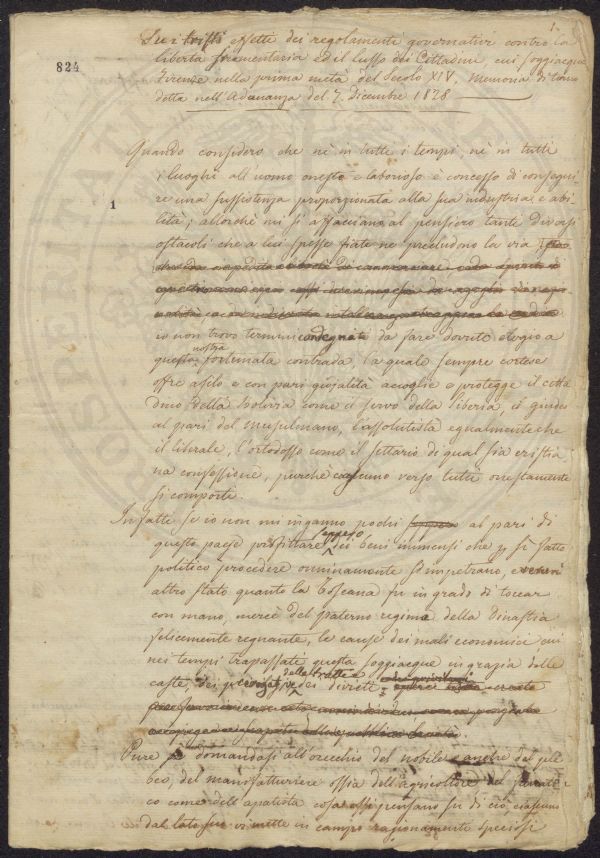 1.
824
Sui tristi effetti dei regolamenti governativi contro la
libertà frumentaria ed il lusso dei Cittadini, cui soggiacque
Firenze nella prima metà del Secolo XIV. Memoria di Lui
detta nell'Adunanza del 7. Dicembre 1828
Quando considero che nè in tutti i tempi, nè in tutti
1
i luoghi all'uomo onesto e laborioso è concesso di consegui
re una sussistenza proporzionata alla sua industria e abi
lità; allorchè mi si affacciano al pensiero tanti diversi
ostacoli che a lui spesse fiate ne precludono la via
io non trovo termini condegnati da fare dovuto elogio a
questa nostra fortunata contrada, la quale sempre cortese
offre asilo e con pari giojalità accoglie e protegge il citta
dino della Bolivia come il servo della Liberia, il giudeo
al pari del musulmano, l'assolutista egualmente che
il liberale, l'ortodosso come il settario di qual sia cristia
na confessione, purchè ciascuno verso tutti onestamente
si comporti.
Infatti se io non mi inganno pochi seppero al pari di
questo paese profittare dei beni immensi che p si fatto
politico procedere onninamente s'impetrano, e verun
altro stato quanto la Toscana fu in grado di toccar
con mano, mercè del paterno regime della Dinastia
felicemente regnante, le cause dei mali economici cui
nei tempi trapassati questa soggiacque in grazia delle
caste, dei delle tratte dei divieti
Pure domandasi all'orecchio del nobile e anche del ple
beo, del manifatturiere ossia dell'agricoltore, del
co come dell'apatista cosa essi pensano su di ciò, ciascuno
dal lato suo vi mette in campo ragionamenti speciosi